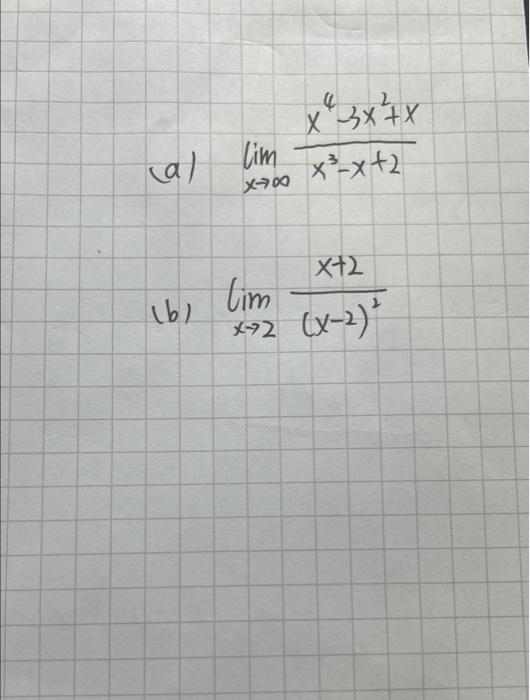 (a) lim x→∞ (x⁴-3x²+x)/(x³-x+2)
(b) lim x→2 (x+2)/(x-2)²